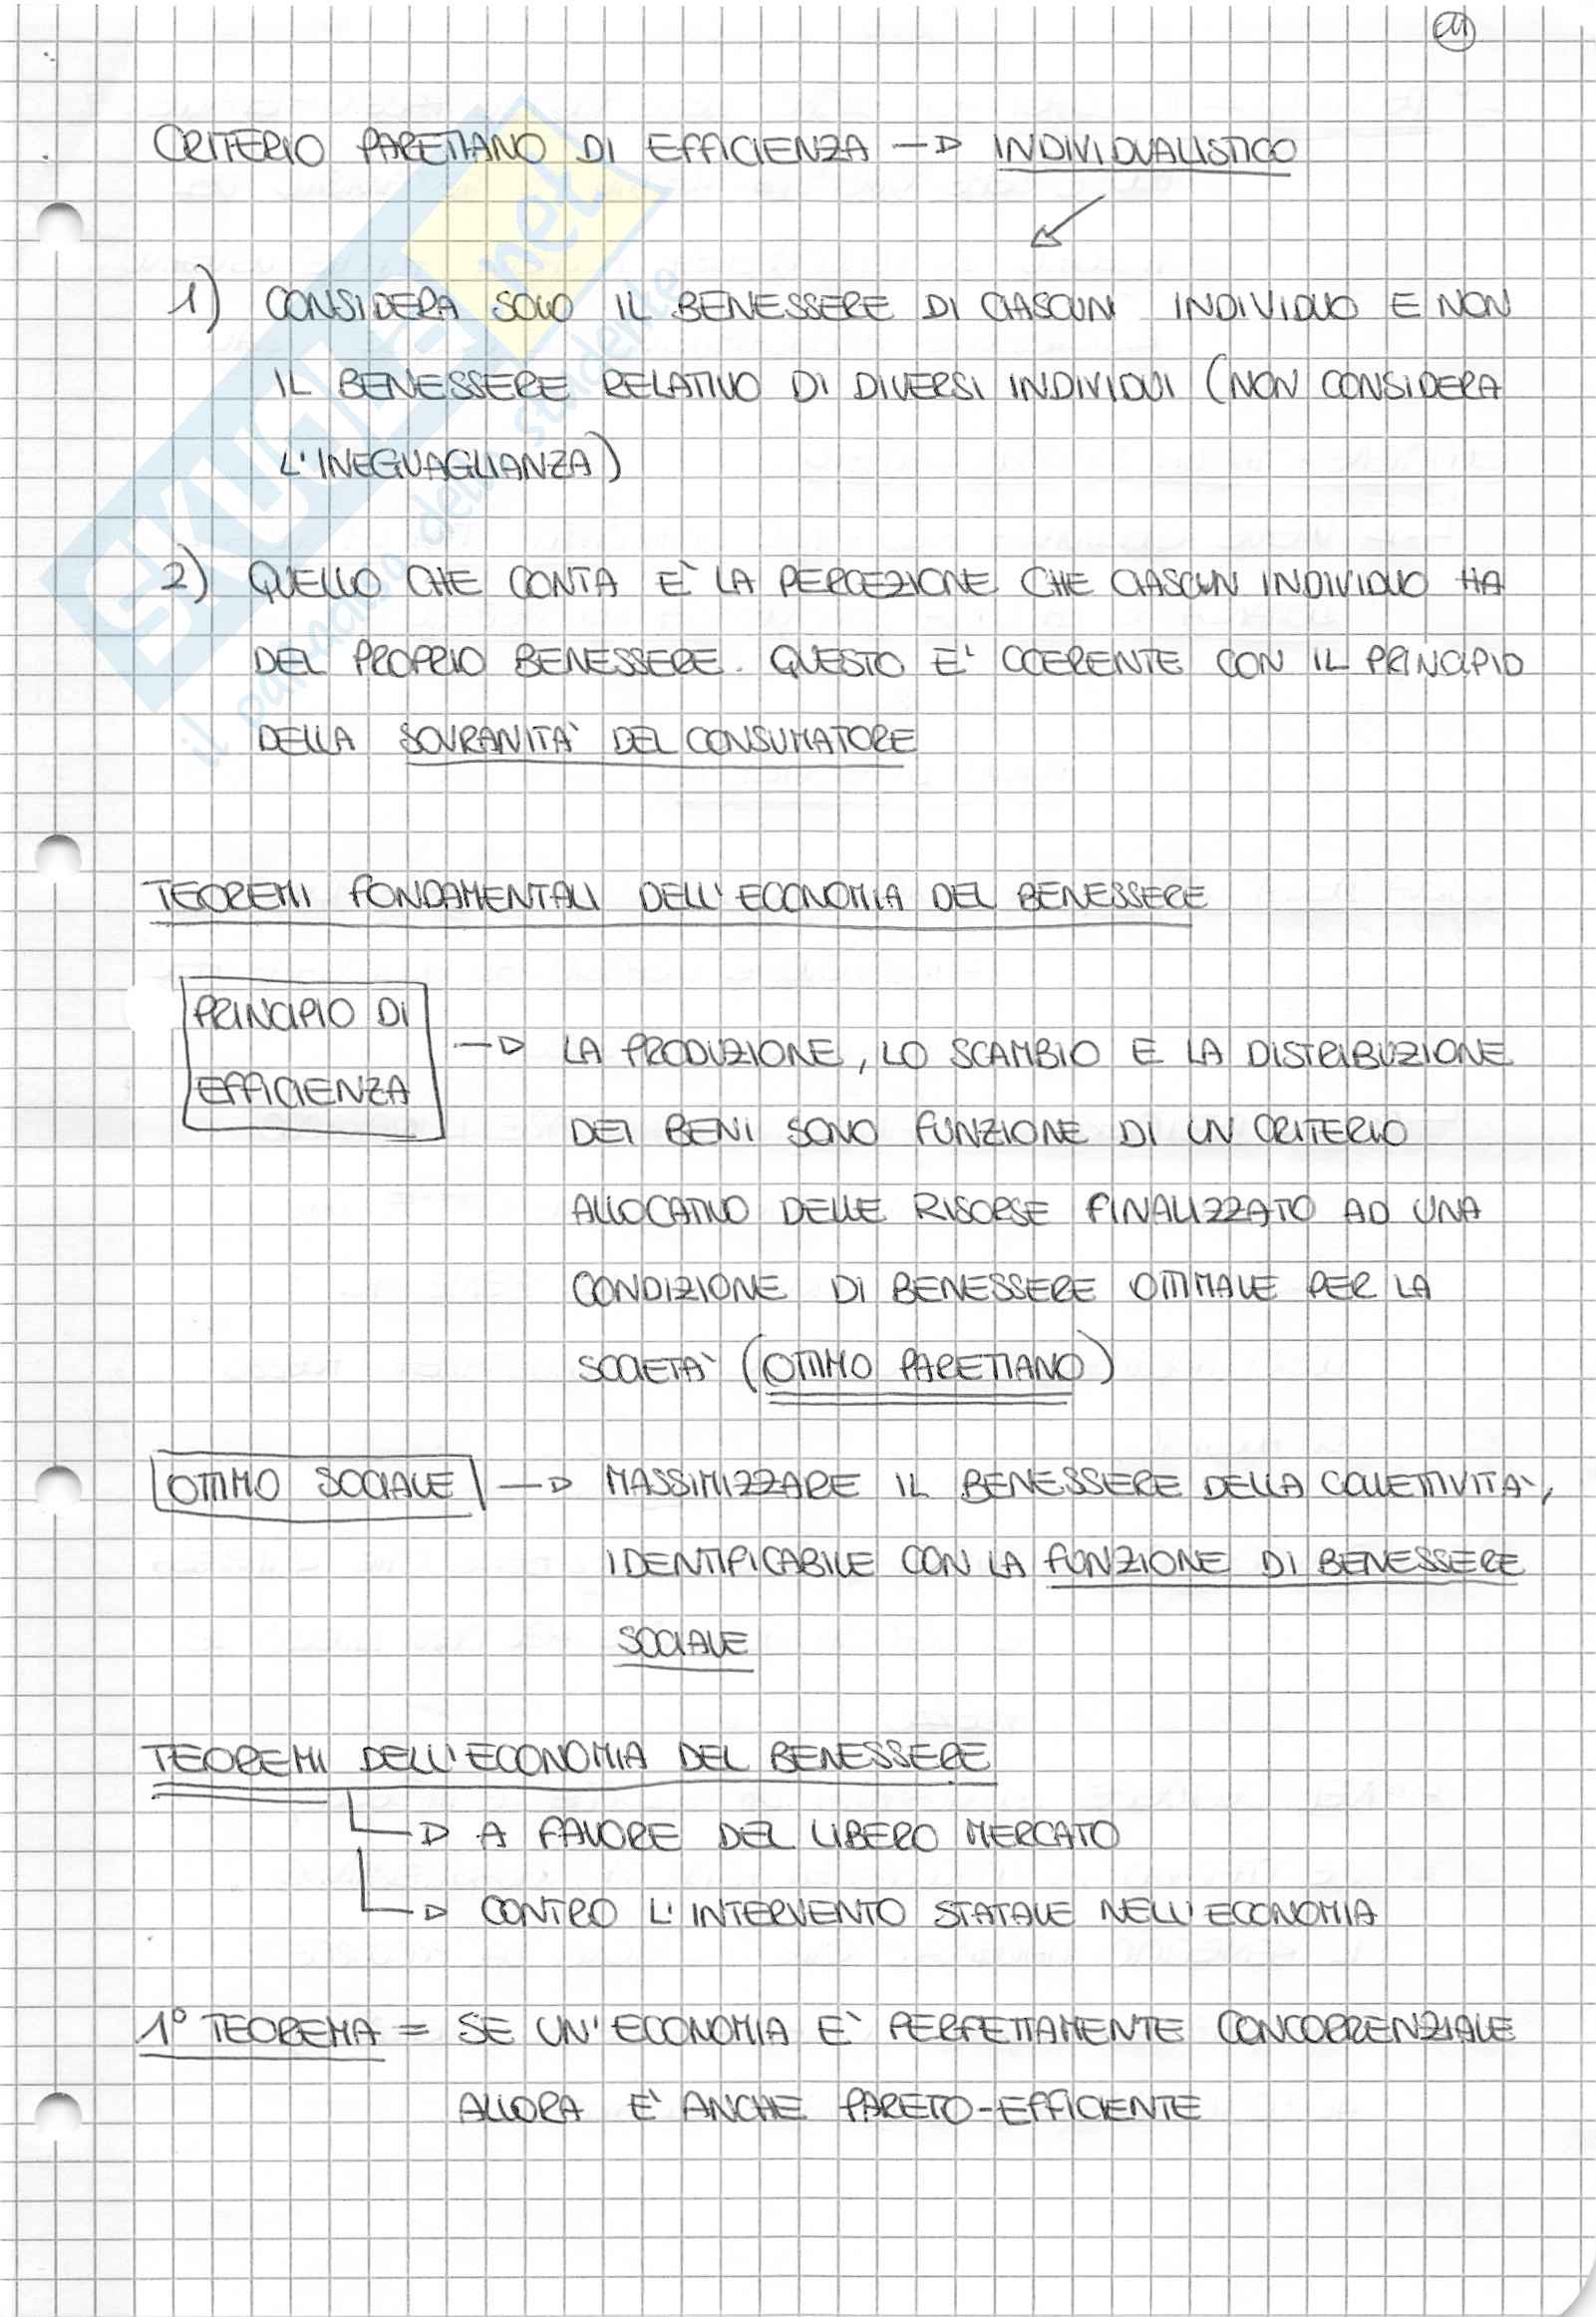 CRITERIO PARETIANO DI EFFICIENZA → INDIVIDUALISTICO
1) CONSIDERA SOLO IL BENESSERE DI CIASCUN INDIVIDUO E NON
IL BENESSERE RELATIVO DI DIVERSI INDIVIDUI (NON CONSIDERA
L'INEGUAGLIANZA)
2) QUELLO CHE CONTA E' LA PERCEZIONE CHE CIASCUN INDIVIDUO HA
DEL PROPRIO BENESSERE. QUESTO E' COERENTE CON IL PRINCIPIO
DELLA SOVRANITA' DEL CONSUMATORE
TEOREMI FONDAMENTALI DELL'ECONOMIA DEL BENESSERE
PRINCIPIO DI
EFFICIENZA
→ LA PRODUZIONE, LO SCAMBIO E LA DISTRIBUZIONE
DEI BENI SONO FUNZIONE DI UN CRITERIO
ALLOCATIVO DELLE RISORSE FINALIZZATO AD UNA
CONDIZIONE DI BENESSERE OTTIMALE PER LA
SOCIETA' (OTTIMO PARETIANO)
OTTIMO SOCIALE → MASSIMIZZARE IL BENESSERE DELLA COLLETTIVITA',
IDENTIFICABILE CON LA FUNZIONE DI BENESSERE
SOCIALE
TEOREMI DELL'ECONOMIA DEL BENESSERE
→ A FAVORE DEL LIBERO MERCATO
→ CONTRO L'INTERVENTO STATALE NELL'ECONOMIA
1° TEOREMA = SE UN'ECONOMIA E' PERFETTAMENTE CONCORRENZIALE
ALLORA E' ANCHE PARETO-EFFICIENTE
SKUOLA.net
il paradiso dello studente